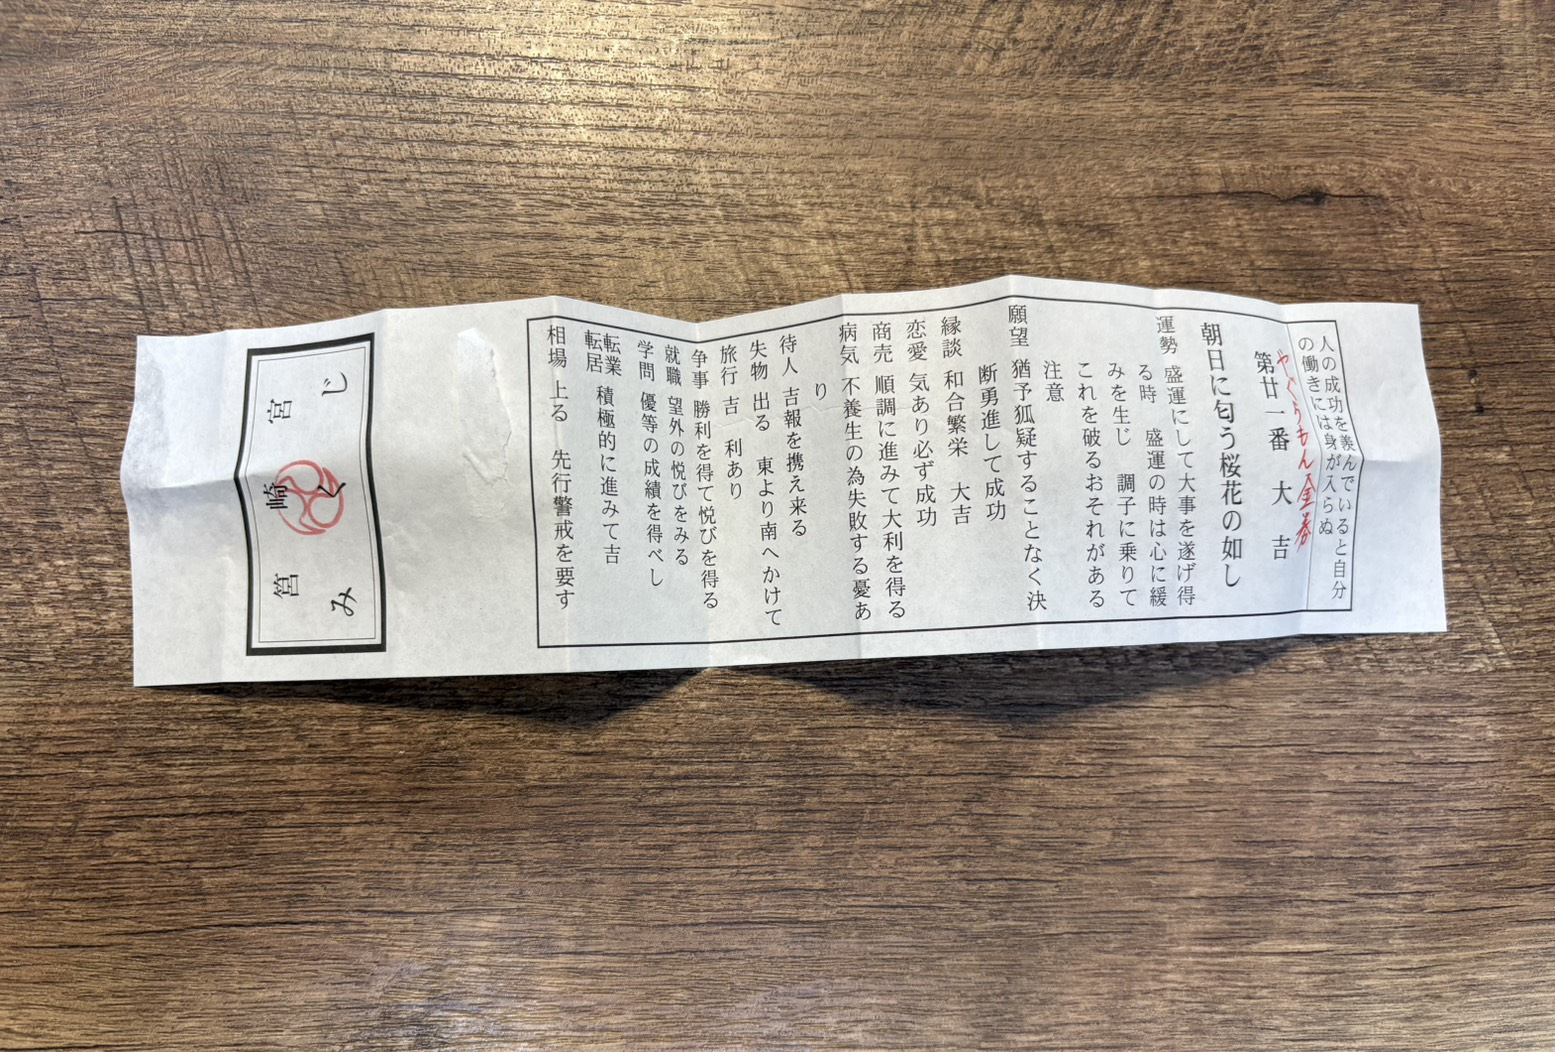 人の成功を羨んでいると自分
の働きには身が入らぬ
第廿一番 大吉
朝日に匂う桜花の如し
運勢 盛運にして大事を遂げ得
る時 盛運の時は心に緩
みを生じ 調子に乗りて
これを破るおそれがある
注意
願望 猶予狐疑することなく決
断勇進して成功
縁談 和合繁栄 大吉
恋愛 気あり必ず成功
商売 順調に進みて大利を得る
病気 不養生の為失敗する憂あ
り
待人 吉報を携え来る
失物 出る 東より南へかけて
旅行 吉 利あり
争事 勝利を得て悦びを得る
就職 望外の悦びをみる
学問 優等の成績を得べし
転業
転居 積極的に進みて吉
相場 上る 先行警戒を要す
筥崎宮
みくじ